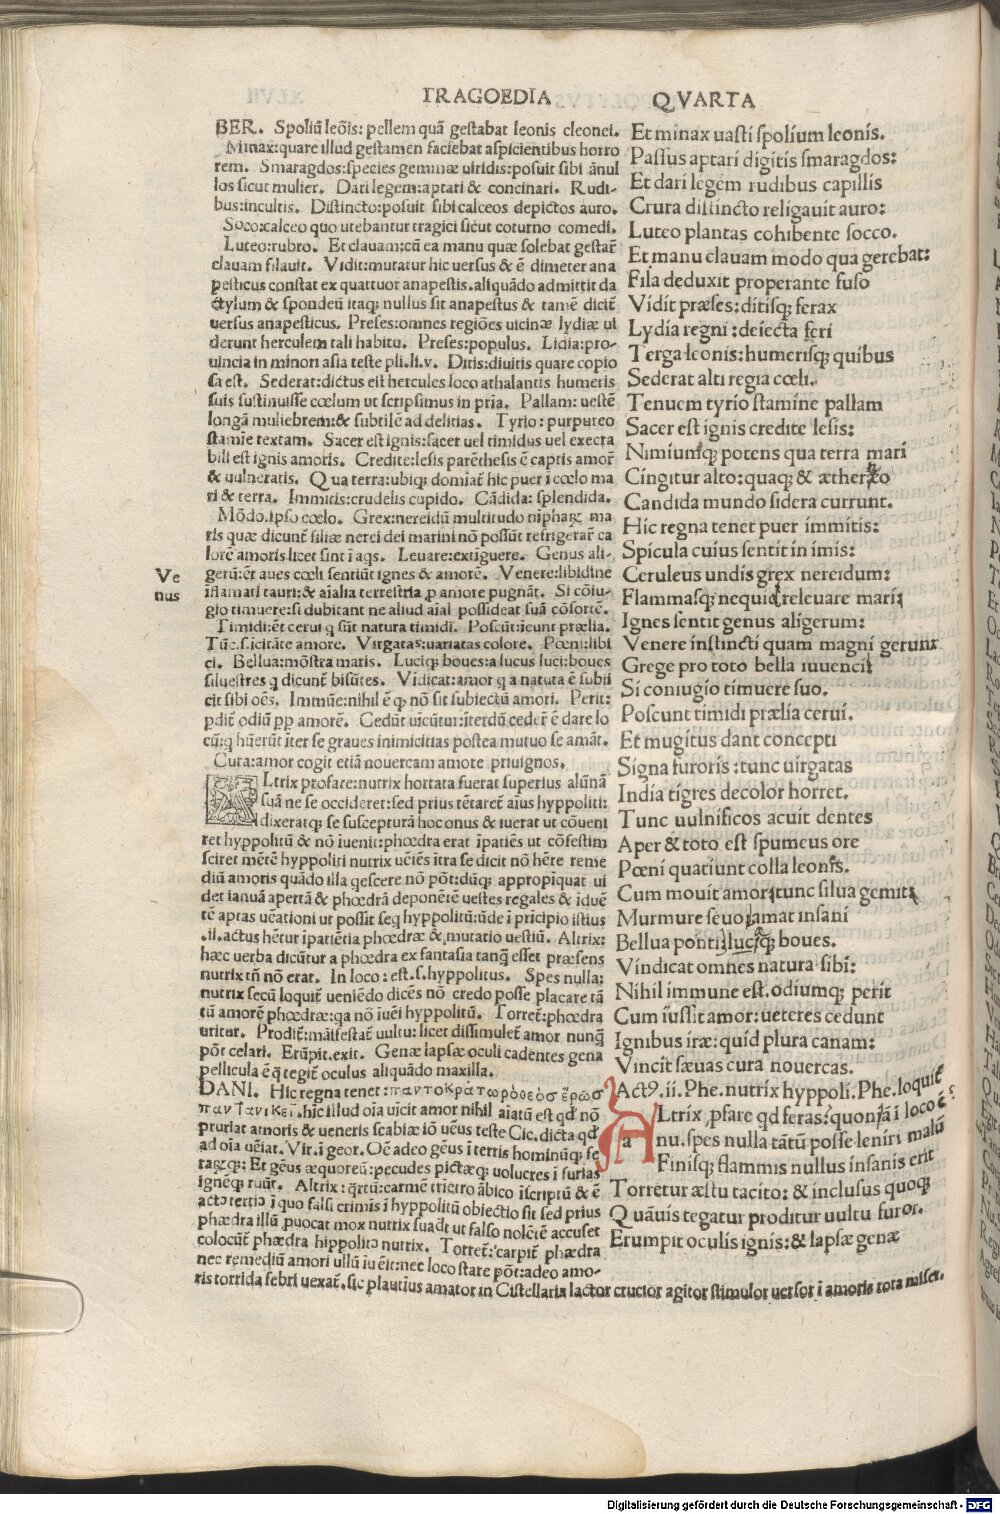 TRAGOEDIA QVARTA
BER. Spoliũ leõis: pellem quã gestabat leonis cleonei.
Minax: quare illud gestamen faciebat aspicientibus horro
rem. Smaragdos: species gemmæ uiridis: posuit sibi ãnul
los sicut mulier. Dari legem: aptari & concinari. Rudi-
bus: incultis. Distincto: posuit sibi calceos depictos auro.
Soco: calceo quo utebantur tragici sicut coturno comedi.
Luteo: rubro. Et clauam: cũ ea manu quæ solebat gestar̃
clauam filauit. Vidit: mutatur hic uersus & ẽ dimeter ana
pesticus constat ex quattuor anapestis. aliquãdo admittit da
ctylum & spondeũ itaq; nullus sit anapestus & tamẽ dicit̃
uersus anapesticus. Preses: omnes regiões uicinæ lydiæ ui
derunt herculem tali habitu. Preses: populus. Lidia: pro-
uincia in minori asia teste pli. li. v. Ditis: diuitis quare copio
sa est. Sederat: dictus est hercules loco athalantis humeris
suis sustinuisse cœlum ut scripsimus in pr̃ia. Pallam: uestẽ
longã muliebrem: & subtilẽ ad delitias. Tyrio: purpureo
stamĩe textam. Sacer est ignis: sacer uel timidus uel execra
bili est ignis amoris. Credite: lesis parẽthesis ẽ captis amor̃
& uulneratis. Qua terra: ubiq; domiat̃ hic puer ĩ cœlo ma
ri & terra. Immitis: crudelis cupido. Cãdida: splendida.
Mõdo. ipso cœlo. Grex: nereidũ multitudo nipharꝝ ma
ris quæ dicunt̃ filiæ nerei dei marini nõ possũt refrigerar̃ ca
lorẽ amoris licet sint ĩ aqs. Leuare: extiguere. Genus ali-
gerũ: et aues cœli sentiũt ignes & amorẽ. Venere: libidine
ĩflamati tauri: & aĩalia terrestria ꝓ amore pugnãt. Si cõiu-
gio timuere: si dubitant ne aliud aĩal possideat suã cõsortẽ.
Timidi: et cerui q̃ sũt natura timidi. Poscũt: ineunt prælia.
Tũc. s. icitãte amore. Virgatas: uariatas colore. Pœni: libi
ci. Bellua: mõstra maris. Luciq; boues: a lucus luci: boues
siluestres q̃ dicunt̃ bisũtes. Vidicat: amor q̃ a natura ẽ subii
cit sibi oẽs. Immũe: nihil ẽ q̃ nõ sit subiectũ amori. Perit:
ꝑdit̃ odiũ ꝓp amorẽ. Cedũt uicũtur: iterdũ ceder̃ ẽ dare lo
cũ: q̃ hũerũt iter se graues inimicitias postea mutuo se amãt.
Cura: amor cogit etiã nouercam amore priuignos.
ALtrix profare: nutrix hortata fuerat superius alũnã
suã ne se occideret: sed prius tẽtaret̃ aĩus hyppoliti:
dixeratq; se suscepturã hoc onus & iuerat ut cõueni
ret hyppolitũ & nõ iuenit: phœdra erat ĩpatiẽs ut cõfestim
sciret mẽtẽ hyppoliti nutrix uẽiẽs ĩtra se dicit nõ hẽre reme
diũ amoris quãdo illa gescere nõ põt: dũq; appropiquat ui
det ianuã apertã & phœdrã deponẽtẽ uestes regales & iduẽ
tẽ aptas uẽationi ut possit seq̃ hyppolitũ: ũde ĩ pricipio istius
.ii. actus hẽtur ĩpatiẽtia phœdræ & mutatio uestiũ. Altrix:
hæc uerba dicũtur a phœdra ex fantasia tanq̃ esset præsens
nutrix tñ nõ erat. In loco: est. s. hyppolitus. Spes nulla:
nutrix secũ loquit̃ ueniẽdo dicẽs nõ credo posse placare tã
tũ amorẽ phœdræ: qa nõ iuẽi hyppolitũ. Torret: phœdra
uritur. Prodit: maĩfestat̃ uultu: licet dissimulet̃ amor nunq̃
põt celari. Erũpit. exit. Genæ lapsæ oculi cadentes gena
pellicula ẽ q̃ tegit̃ oculus aliquãdo maxilla.
DANI. Hic regna tenet: παντοκράτωρ ὁ θεὸς ἔρως
παντανικεῖ. hic illud oĩa uicit amor nihil aĩatũ est qđ nõ
pruriat amoris & ueneris scabiæ iõ uẽus teste Cic. dicta qđ
ad oĩa uẽiat. Vir. ĩ geor. Oẽ adeo gẽus ĩ terris hominũq; fe
rarꝝq;: Et gẽus æquoreũ: pecudes pictæq; uolucres ĩ furias
ignẽq; ruũt. Altrix: q̃rtũ: carmẽ trĩetro ãbico ĩscriptũ & ẽ
acto tertio ĩ quo falsi crimis ĩ hyppolitũ obiectio sit sed prius
phædra illũ ꝓuocat mox nutrix suadt̃ ut falso nolẽtẽ accuset
colocũt̃ phædra hippolito nutrix. Torret: carpit̃ phædra
nec remediũ amori ullũ iuẽit: nec loco stare põt: adeo amo-
ris torrida febri uexat̃. sic plautius amator in Cistellaria iactor crucior agitor stimulor uersor ĩ amoris rota miser.
Ve
nus
Et minax uasti spolium leonis.
Passus aptari digitis smaragdos:
Et dari legem rudibus capillis
Crura distincto religauit auro:
Luteo plantas cohibente socco.
Et manu clauam modo qua gerebat:
Fila deduxit properante fuso
Vidit præses: ditisq; ferax
Lydia regni: deiecta feri
Terga leonis: humerisq; quibus
Sederat alti regia cœli.
Tenuem tyrio stamine pallam
Sacer est ignis credite lesis:
Nimiumq; potens qua terra mari
Cingitur alto: quaq; & æthereo
Candida mundo sidera currunt.
Hic regna tenet puer immitis:
Spicula cuius sentit in imis:
Ceruleus undis grex nereidum:
Flammasq; nequid releuare mari
Ignes sentit genus aligerum:
Venere instincti quam magni gerunt
Grege pro toto bella iuuenci
Si coniugio timuere suo.
Poscunt timidi prælia cerui.
Et mugitus dant concepti
Signa furoris: tunc uirgatas
India tigres decolor horret.
Tunc uulnificos acuit dentes
Aper & toto est spumeus ore
Pœni quatiunt colla leonis.
Cum mouit amor tunc silua gemit
Murmure seuo amat insani
Bellua ponti luciq; boues.
Vindicat omnes natura sibi:
Nihil immune est. odiumq; perit
Cum iussit amor: ueteres cedunt
Ignibus iræ: quid plura canam:
Vincit sæuas cura nouercas.
Act9. ii. Phe. nutrix hyppoli. Phe. loquit̃
ALtrix ꝓfare qđ feras: quonã ĩ loco ẽ:
nu. spes nulla tãtũ posse leniri malũ
Finisq; flammis nullus insanis erit
Torretur æstu tacito: & inclusus quoq;
Quãuis tegatur proditur uultu furor.
Erumpit oculis ignis: & lapsæ genæ
Digitalisierung gefördert durch die Deutsche Forschungsgemeinschaft - DFG